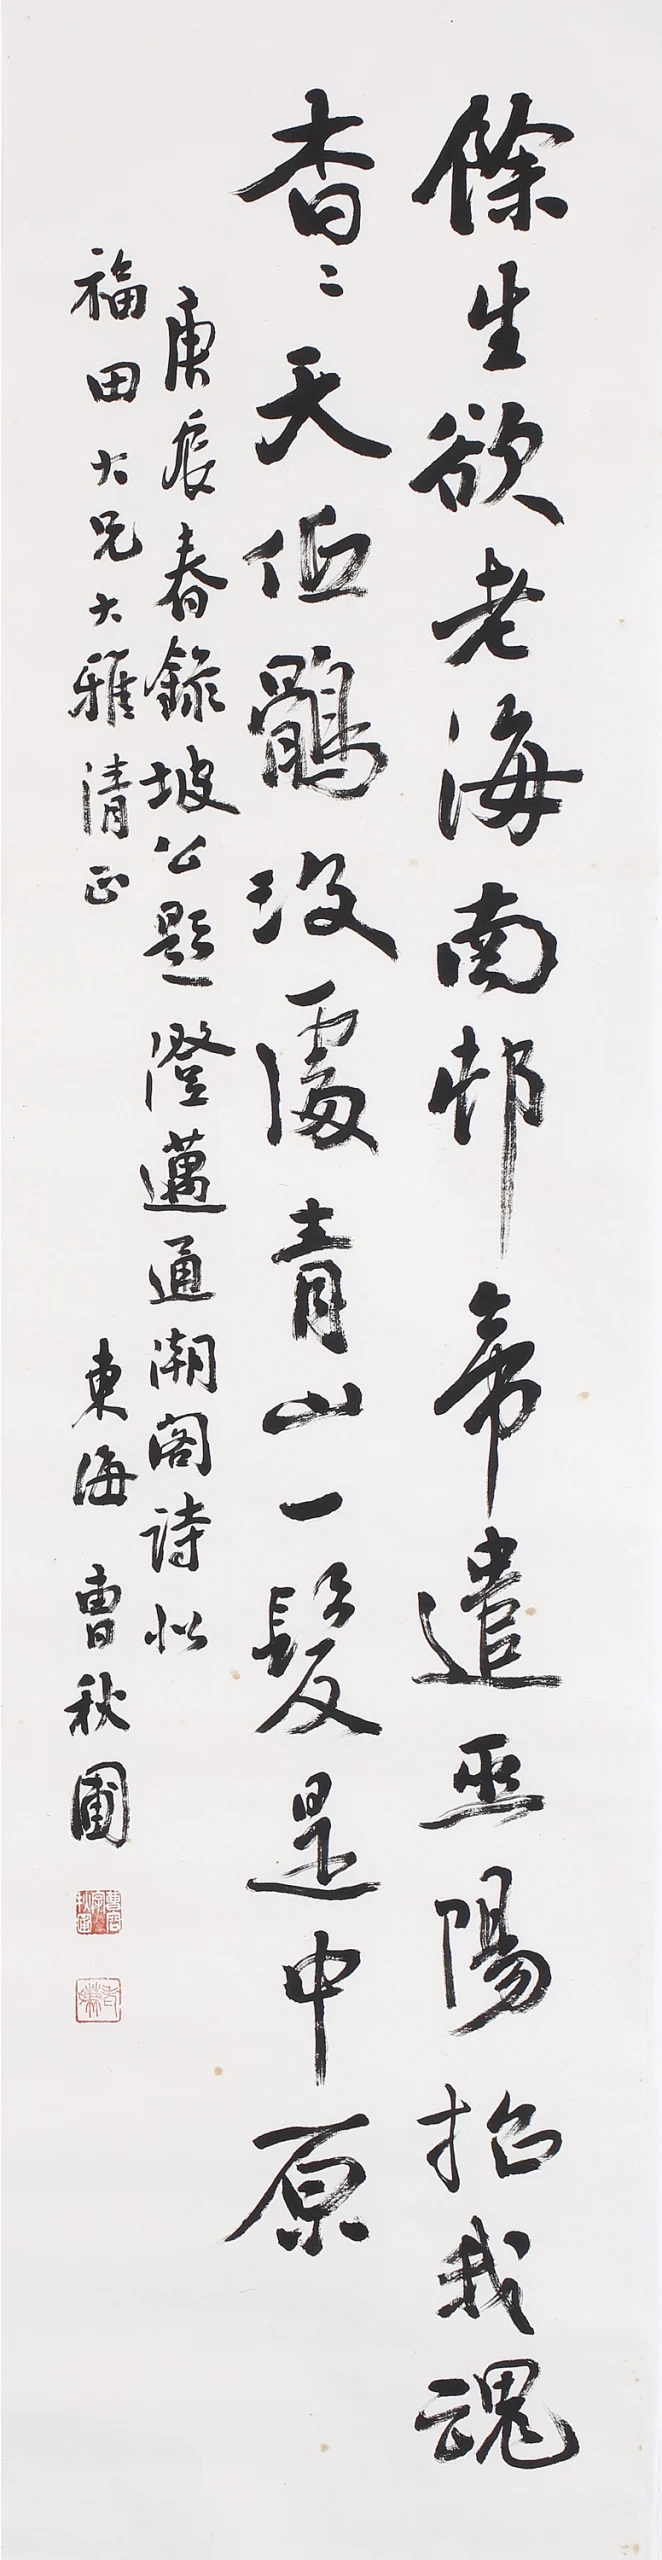 餘生欲老海南邨帝遣巫陽招我魂
杳〻天低鶻没處青山一髮是中原
庚辰春錄坡公題澄邁通潮閣詩似
福田大兄大雅清正
東海 曹秋圃